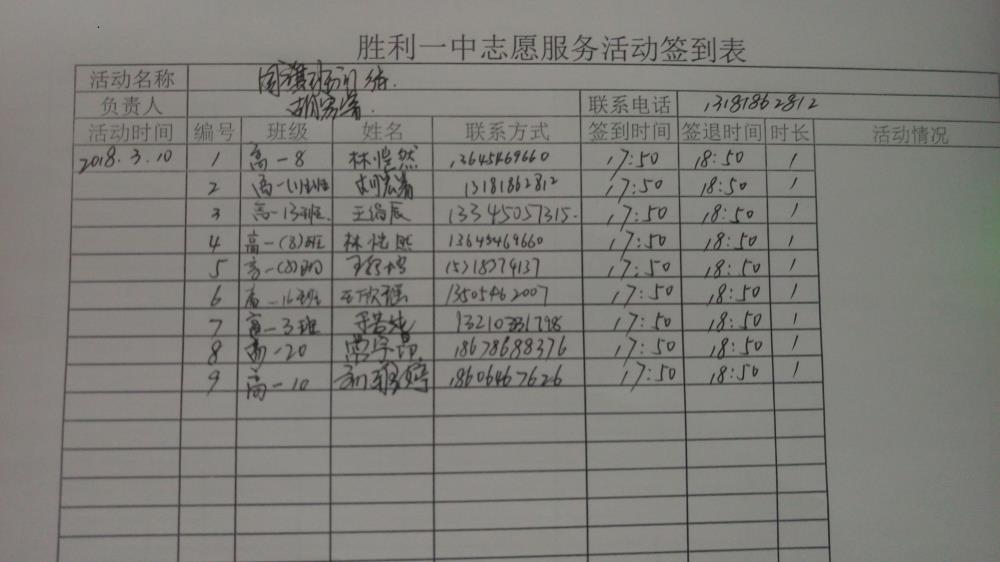 胜利一中志愿服务活动签到表
活动名称 国旗班训练.
负责人 联系电话 13181862812
活动时间 编号 班级 姓名 联系方式 签到时间 签退时间 时长 活动情况
2018.3.10 1 高一8 林恺然 13645469660 17:50 18:50 1
2 高一11班 13181862812 17:50 18:50 1
3 高一13班. 13345057315. 17:50 18:50 1
4 高一(8)班 林恺然 13645469660 17:50 18:50 1
5 高一(8)班 17:50 18:50 1
6 高一16班 王欣瑶 13505462007 17:50 18:50 1
7 高一3班 17:50 18:50 1
8 高一20 18678688376 17:50 18:50 1
9 高一10 18606467626 17:50 18:50 1